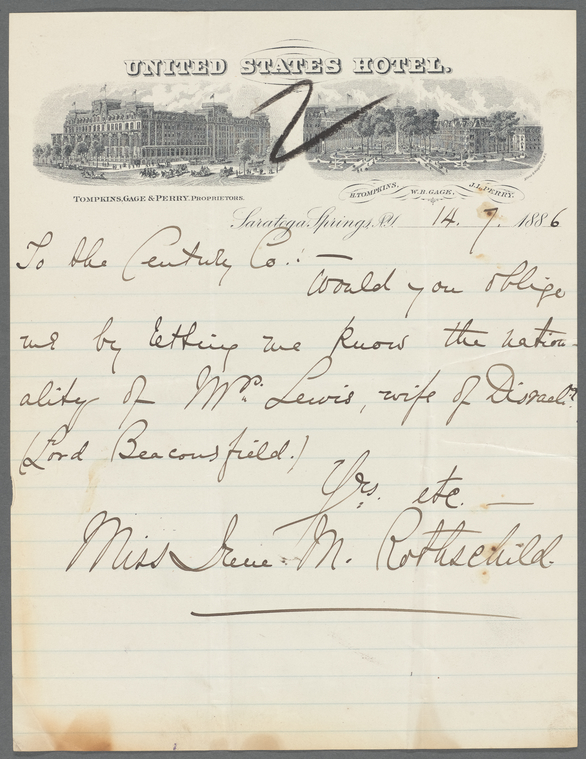 UNITED STATES HOTEL.
TOMPKINS, GAGE & PERRY, PROPRIETORS.
H. TOMPKINS, W. B. GAGE, J. L. PERRY.
Saratoga Springs, N.Y. 14. 7. 1886
To the Century Co.: —
Would you oblige
me by letting me know the nation-
ality of Mrs. Lewis, wife of Disraeli
(Lord Beaconsfield.)
Yrs. etc. —
Miss Irene M. Rothschild